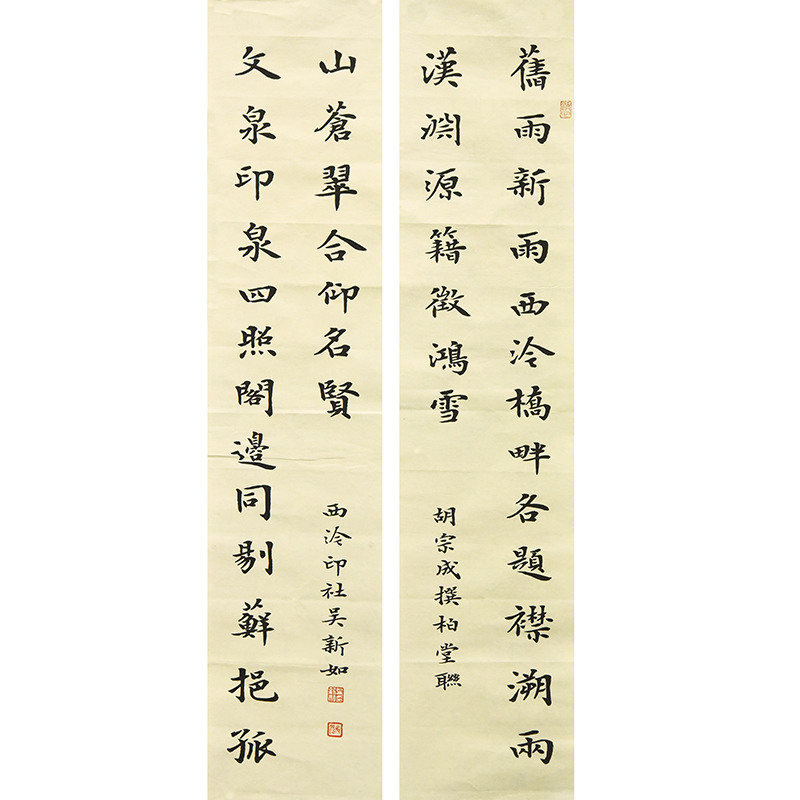 舊雨新雨西泠橋畔各題襟溯兩
漢淵源籍徵鴻雪
胡宗成撰柏堂聯
文泉印泉四照閣邊同剔蘚挹孤
山蒼翠合仰名賢
西泠印社吳新如